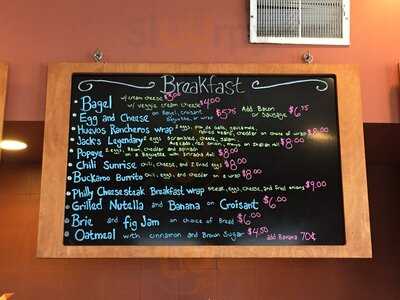 Breakfast
Bagel w/ cream cheese $3.00
w/ veggie cream cheese $4.00
Add Bacon
Egg and Cheese on Bagel, croisant $5.75
Baguette, or wrap
or Sausage $6.75
Huevos Rancheros wrap 2 eggs, pico de gallo, guacamole,
beans, cheddar on choice of wrap $8.00
Jack's Legendary eggs scrambled, cheese, salami
Avocado, red onion, mayo on English Muffin $8.00
Popeye 2 eggs, Bacon, cheddar and spinach
on a Baguette with Sriracha Aoli $8.00
Chili Sunrise chili, cheese, and 2 fried eggs $8.00
Buckaroo Burrito chili, eggs, and cheddar on a wrap $8.00
Philly Cheesesteak Breakfast wrap steak, eggs, cheese, and fried onions $9.00
Grilled Nutella and Banana on Croisant $6.00
Brie and fig Jam on choice of Bread $6.00
Oatmeal with cinnamon and Brown Sugar $4.50 add Banana 70¢